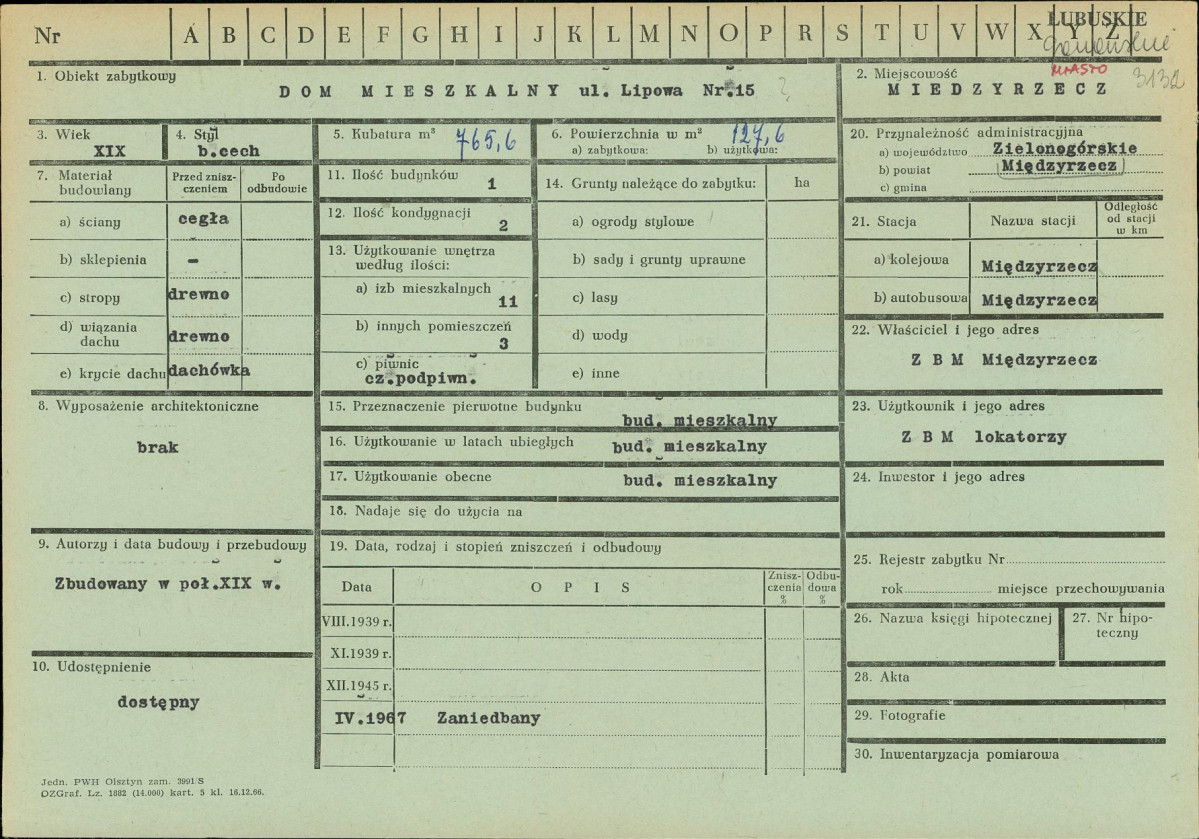 Nr A B C D E F G H I J K L M N O P R S T U V W X Y Z
LUBUSKIE
MIASTO 3132
1. Obiekt zabytkowy
DOM MIESZKALNY ul. Lipowa Nr.15 ?
2. Miejscowość
MIEDZYRZECZ
3. Wiek
XIX
4. Styl
b.cech
5. Kubatura m³ 765,6
6. Powierzchnia w m² 127,6
a) zabytkowa: b) użytkowa:
20. Przynależność administracyjna
a) województwo Zielonogórskie
b) powiat Międzyrzecz
c) gmina
7. Materiał budowlany
Przed zniszczeniem
Po odbudowie
a) ściany cegła
b) sklepienia -
c) stropy drewno
d) wiązania dachu drewno
e) krycie dachu dachówka
11. Ilość budynków 1
12. Ilość kondygnacji 2
13. Użytkowanie wnętrza
według ilości:
a) izb mieszkalnych 11
b) innych pomieszczeń 3
c) piwnic
cz.podpiwn.
14. Grunty należące do zabytku: ha
a) ogrody stylowe
b) sady i grunty uprawne
c) lasy
d) wody
e) inne
21. Stacja Nazwa stacji
Odległość
od stacji
w km
a) kolejowa Międzyrzecz
b) autobusowa Międzyrzecz
22. Właściciel i jego adres
Z B M Międzyrzecz
8. Wyposażenie architektoniczne
brak
15. Przeznaczenie pierwotne budynku bud. mieszkalny
16. Użytkowanie w latach ubiegłych bud. mieszkalny
17. Użytkowanie obecne bud. mieszkalny
18. Nadaje się do użycia na
23. Użytkownik i jego adres
Z B M lokatorzy
24. Inwestor i jego adres
9. Autorzy i data budowy i przebudowy
Zbudowany w poł.XIX w.
10. Udostępnienie
dostępny
19. Data, rodzaj i stopień zniszczeń i odbudowy
Data O P I S
Znisz-
czenia
%
Odbu-
dowa
%
VIII.1939 r.
XI.1939 r.
XII.1945 r.
IV.1967 Zaniedbany
25. Rejestr zabytku Nr
rok miejsce przechowywania
26. Nazwa księgi hipotecznej
27. Nr hipo-
teczny
28. Akta
29. Fotografie
30. Inwentaryzacja pomiarowa
Jedn. PWH Olsztyn zam. 3991/S
OZGraf. Lz. 1882 (14.000) kart. 5 kl. 16.12.66.